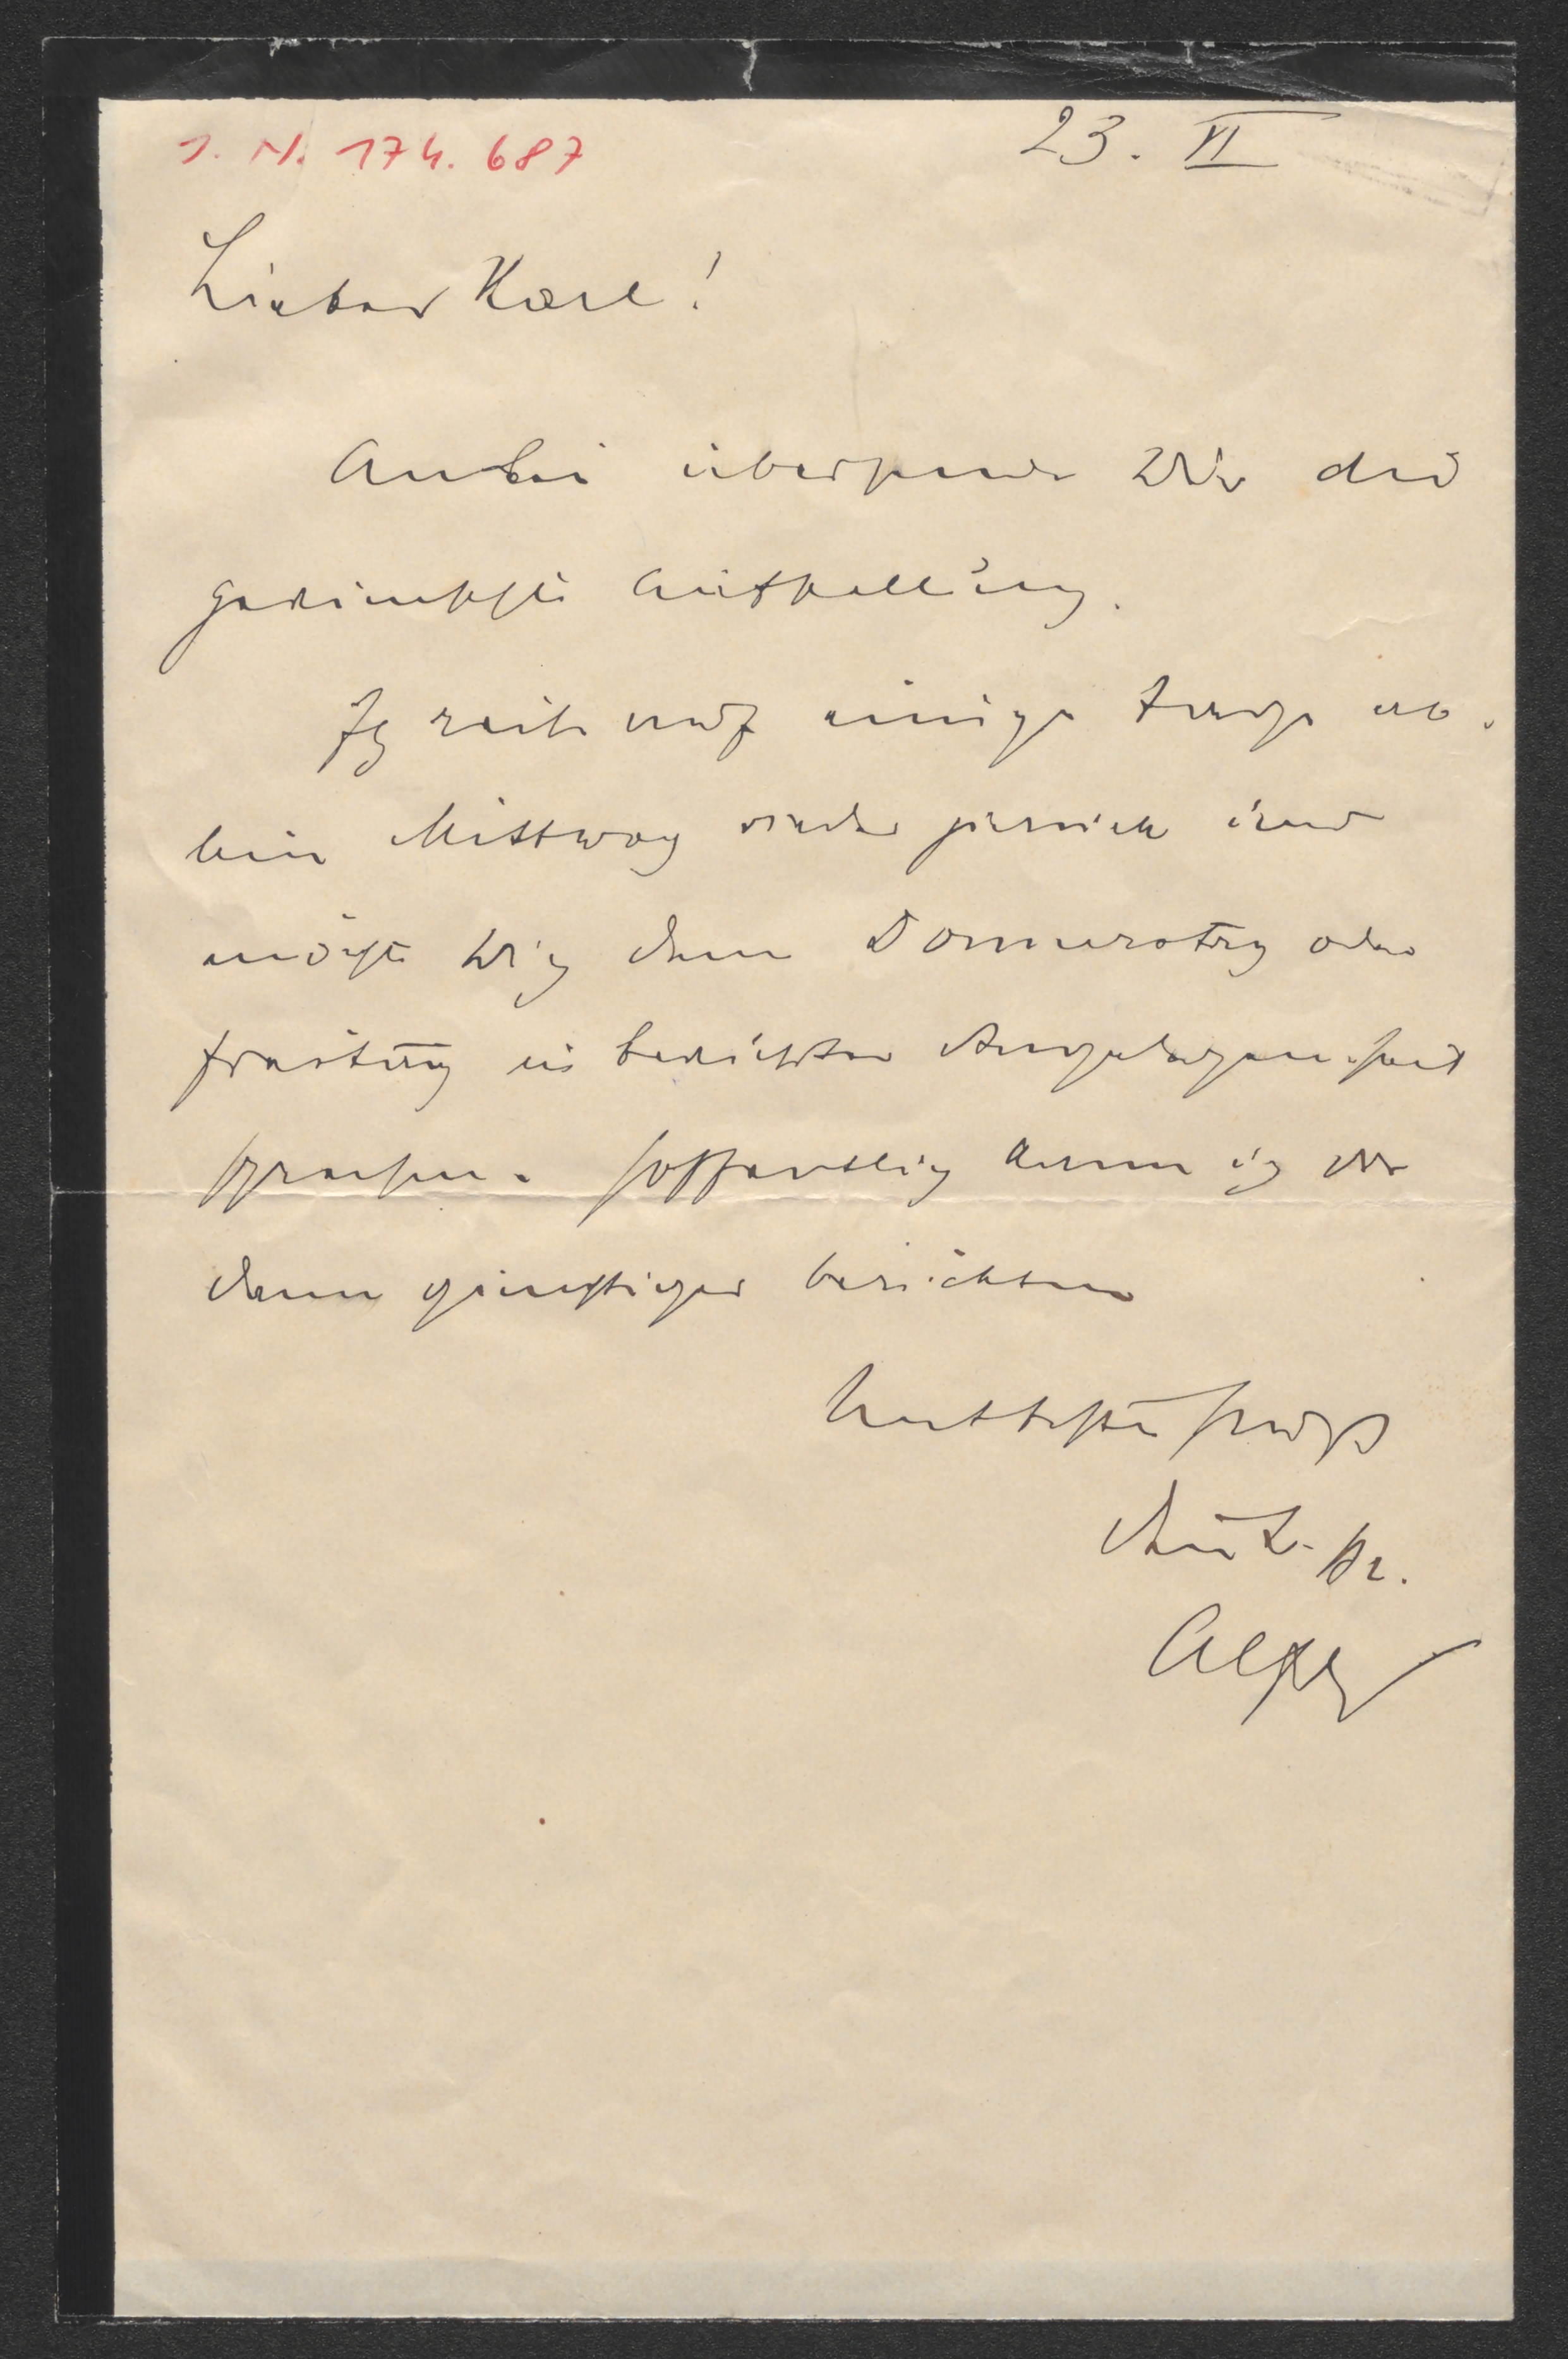 I. N. 174.687
23. VI
Lieber Karl!
Anbei übersende Dir die
gewünschte Aufstellung.
Ich reise auf einige Tage ab.
bin Mittwoch wieder zurück und
möchte Dich dann Donnerstag oder
Freitag in bewußter Angelegenheit
sprechen. Hoffentlich kann ich Dir
dann günstiger berichten